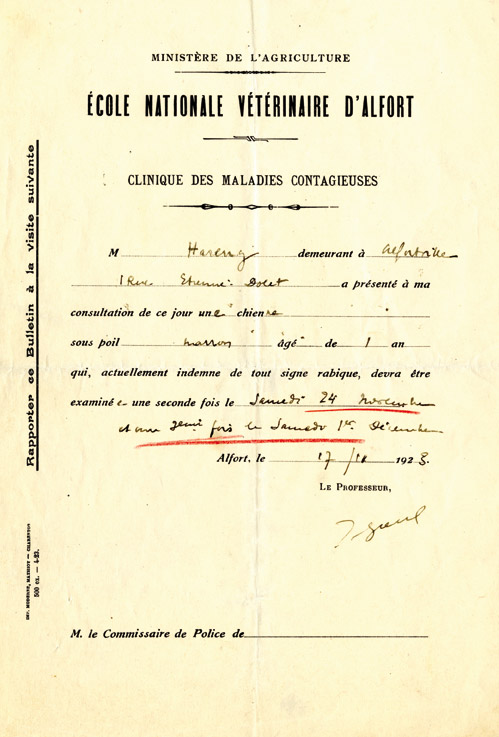 MINISTÈRE DE L'AGRICULTURE
ÉCOLE NATIONALE VÉTÉRINAIRE D'ALFORT
CLINIQUE DES MALADIES CONTAGIEUSES
M Hareng demeurant à Alfortville
1 Rue Etienne Dolet a présenté à ma
consultation de ce jour une chienne
sous poil marron âgé de 1 an
qui, actuellement indemne de tout signe rabique, devra être
examinée une seconde fois le Samedi 24 Novembre
et une 3eme fois le Samedi 1er Décembre
Alfort, le 17/11 1923.
LE PROFESSEUR,
M. le Commissaire de Police de
Rapporter ce Bulletin à la visite suivante
IMP. MODERNE, — CHARENTON
500 ex. — 4-23.